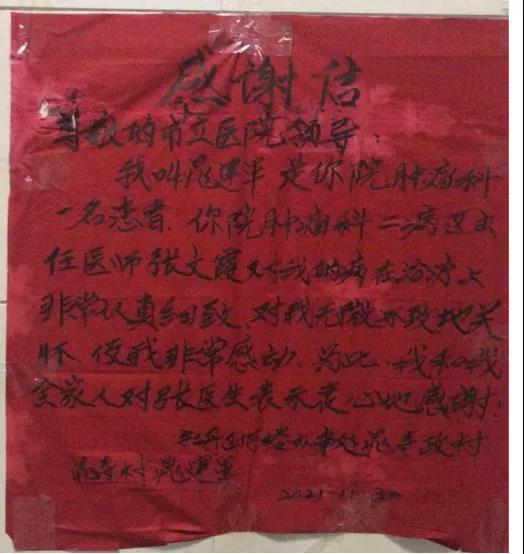 感谢信
尊敬的市立医院领导：
我叫晁建军，是你院肿瘤科
一名患者，你院肿瘤科二病区主
任医师张文霞对我的病在治疗上
非常认真细致，对我无微不致地关
怀，使我非常感动，为此，我和我
全家人对张医生表示衷心地感谢！
办事处晁寺政村
晁寺村 晁建军
2021.11.30